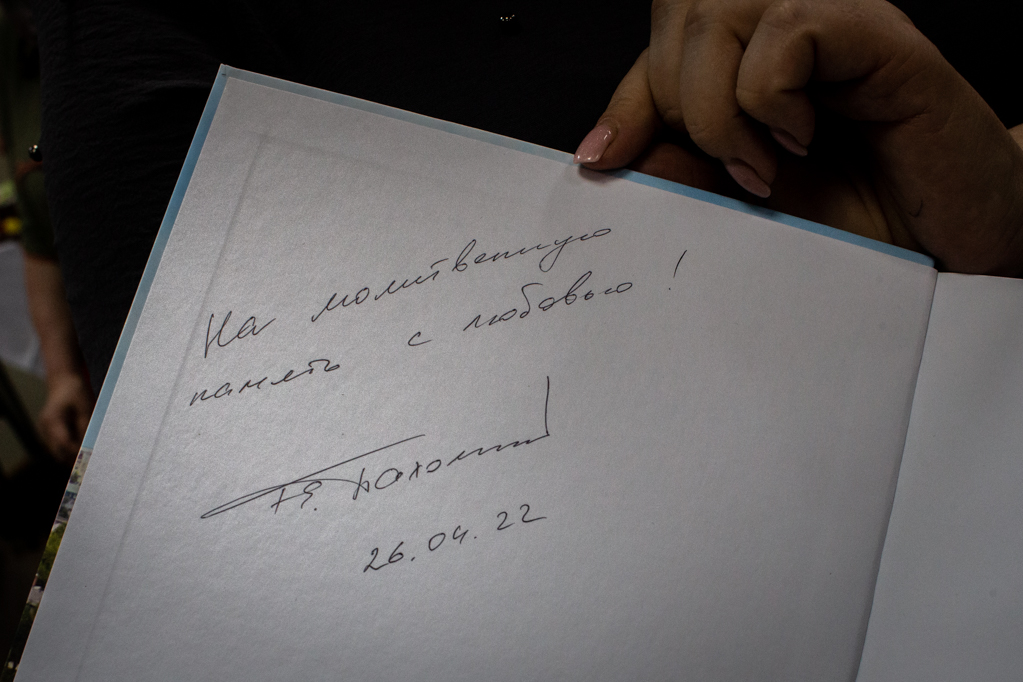 На молитвенную
память с любовью!
Пахомий
26.04.22